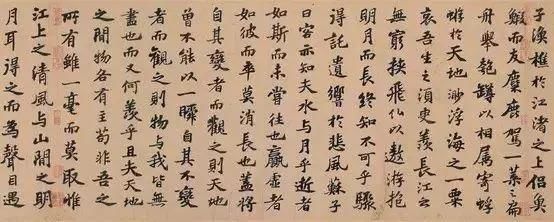 子漁樵於江渚之上侶魚
鰕而友麋鹿駕一葉扁
舟舉匏罇以相属寄蜉
蝣於天地渺浮海之一粟
哀吾生之須臾羨長江之
無窮挾飛仙以遨游抱
明月而長終知不可乎驟
得託遺響於悲風蘇子
曰客亦知夫水與月乎逝者
如斯而未嘗往也贏虛者
如彼而卒莫消長也盖將
自其變者而觀之則天地
曾不能以一瞬自其不變
者而觀之則物與我皆無
盡也而又何羨乎且夫天地
之間物各有主苟非吾之
所有雖一毫而莫取惟
江上之清風與山間之明
月耳得之而為聲目遇